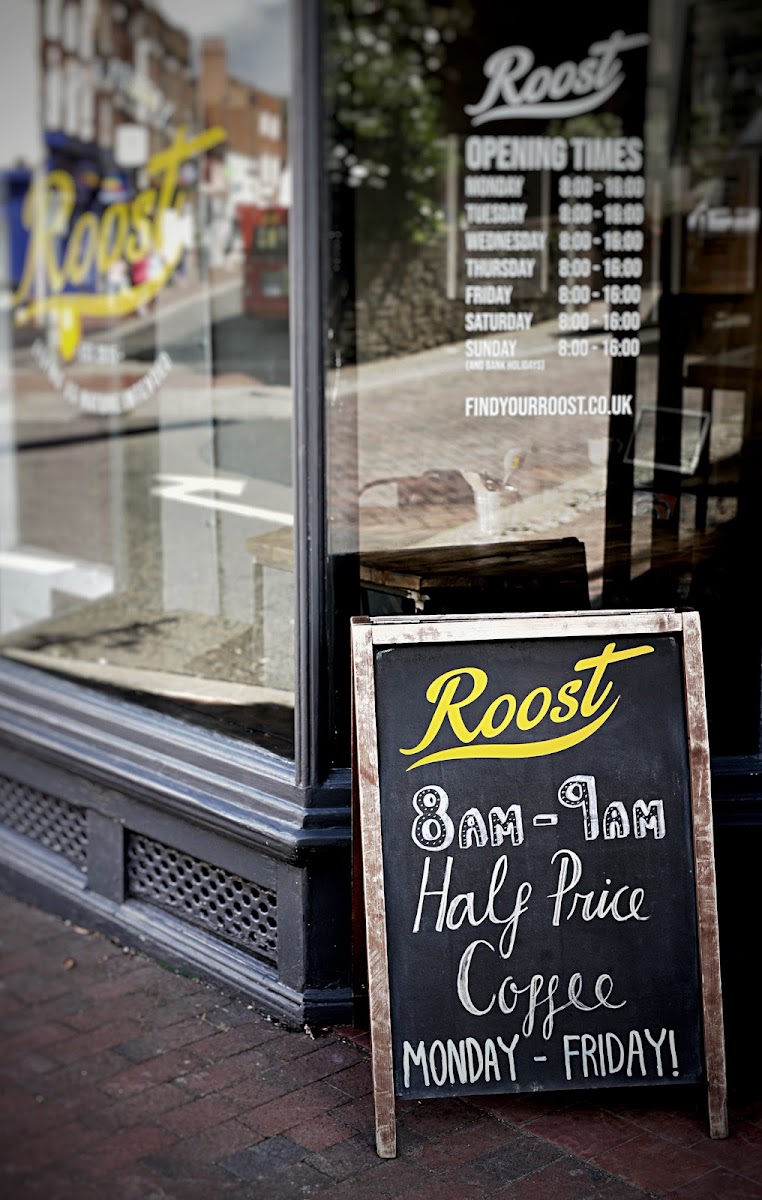 Roost
Roost
OPENING TIMES
MONDAY 8:00 - 16:00
TUESDAY 8:00 - 16:00
WEDNESDAY 8:00 - 16:00
THURSDAY 8:00 - 16:00
FRIDAY 8:00 - 16:00
SATURDAY 8:00 - 16:00
SUNDAY 8:00 - 16:00
(AND BANK HOLIDAYS)
FINDYOURROOST.CO.UK
Roost
8AM - 9AM
Half Price
Coffee
MONDAY - FRIDAY!